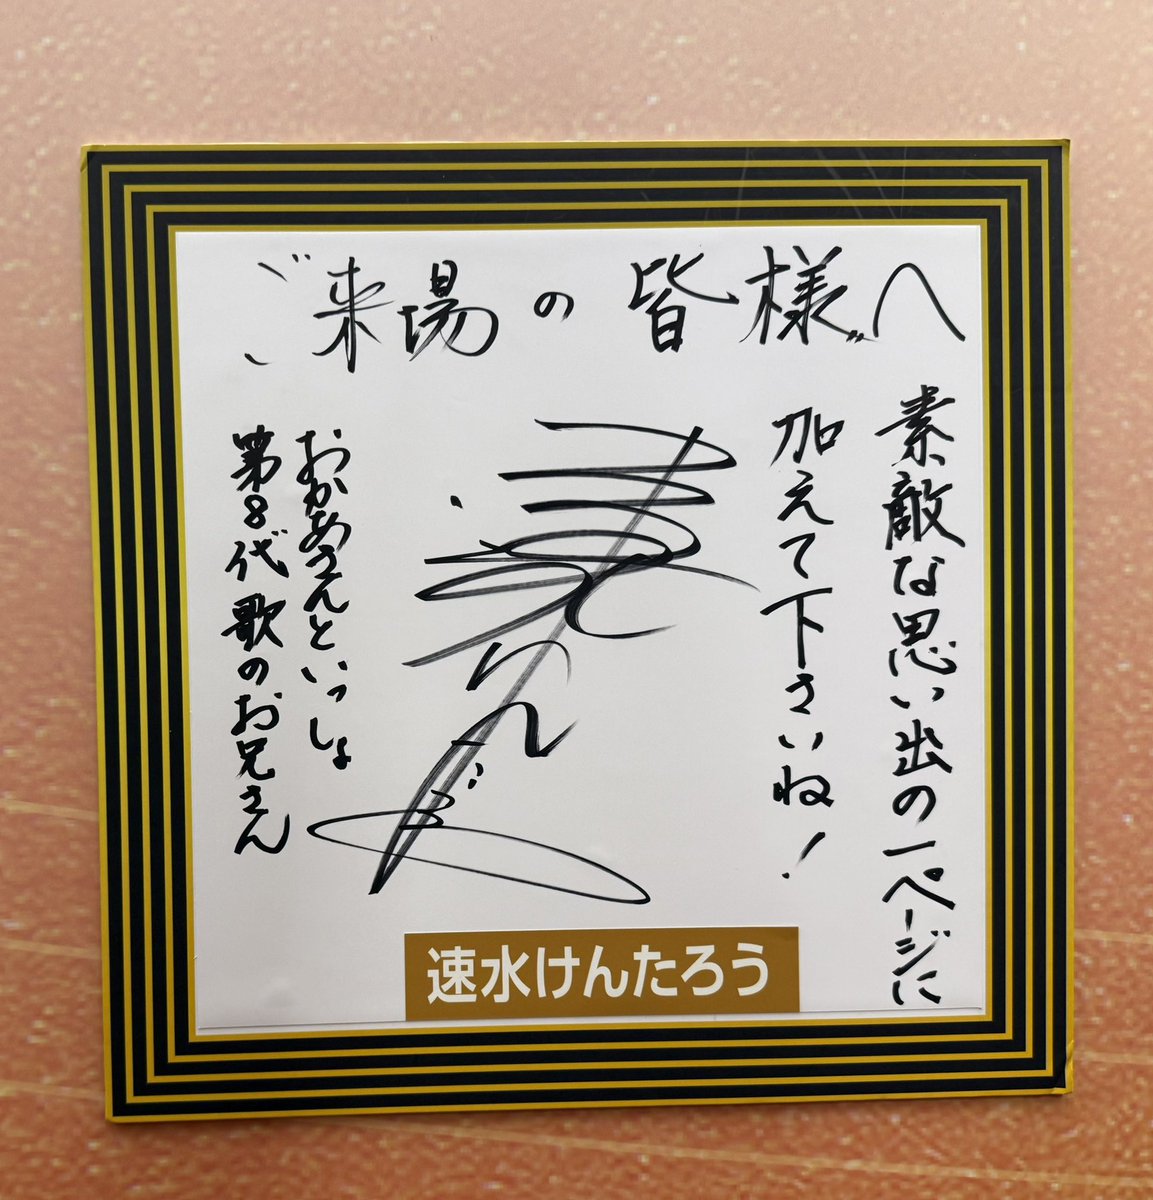 ご来場の皆様へ
素敵な思い出の一ページに
加えて下さいね!
おかあさんといっしょ
第8代歌のお兄さん
速水けんたろう